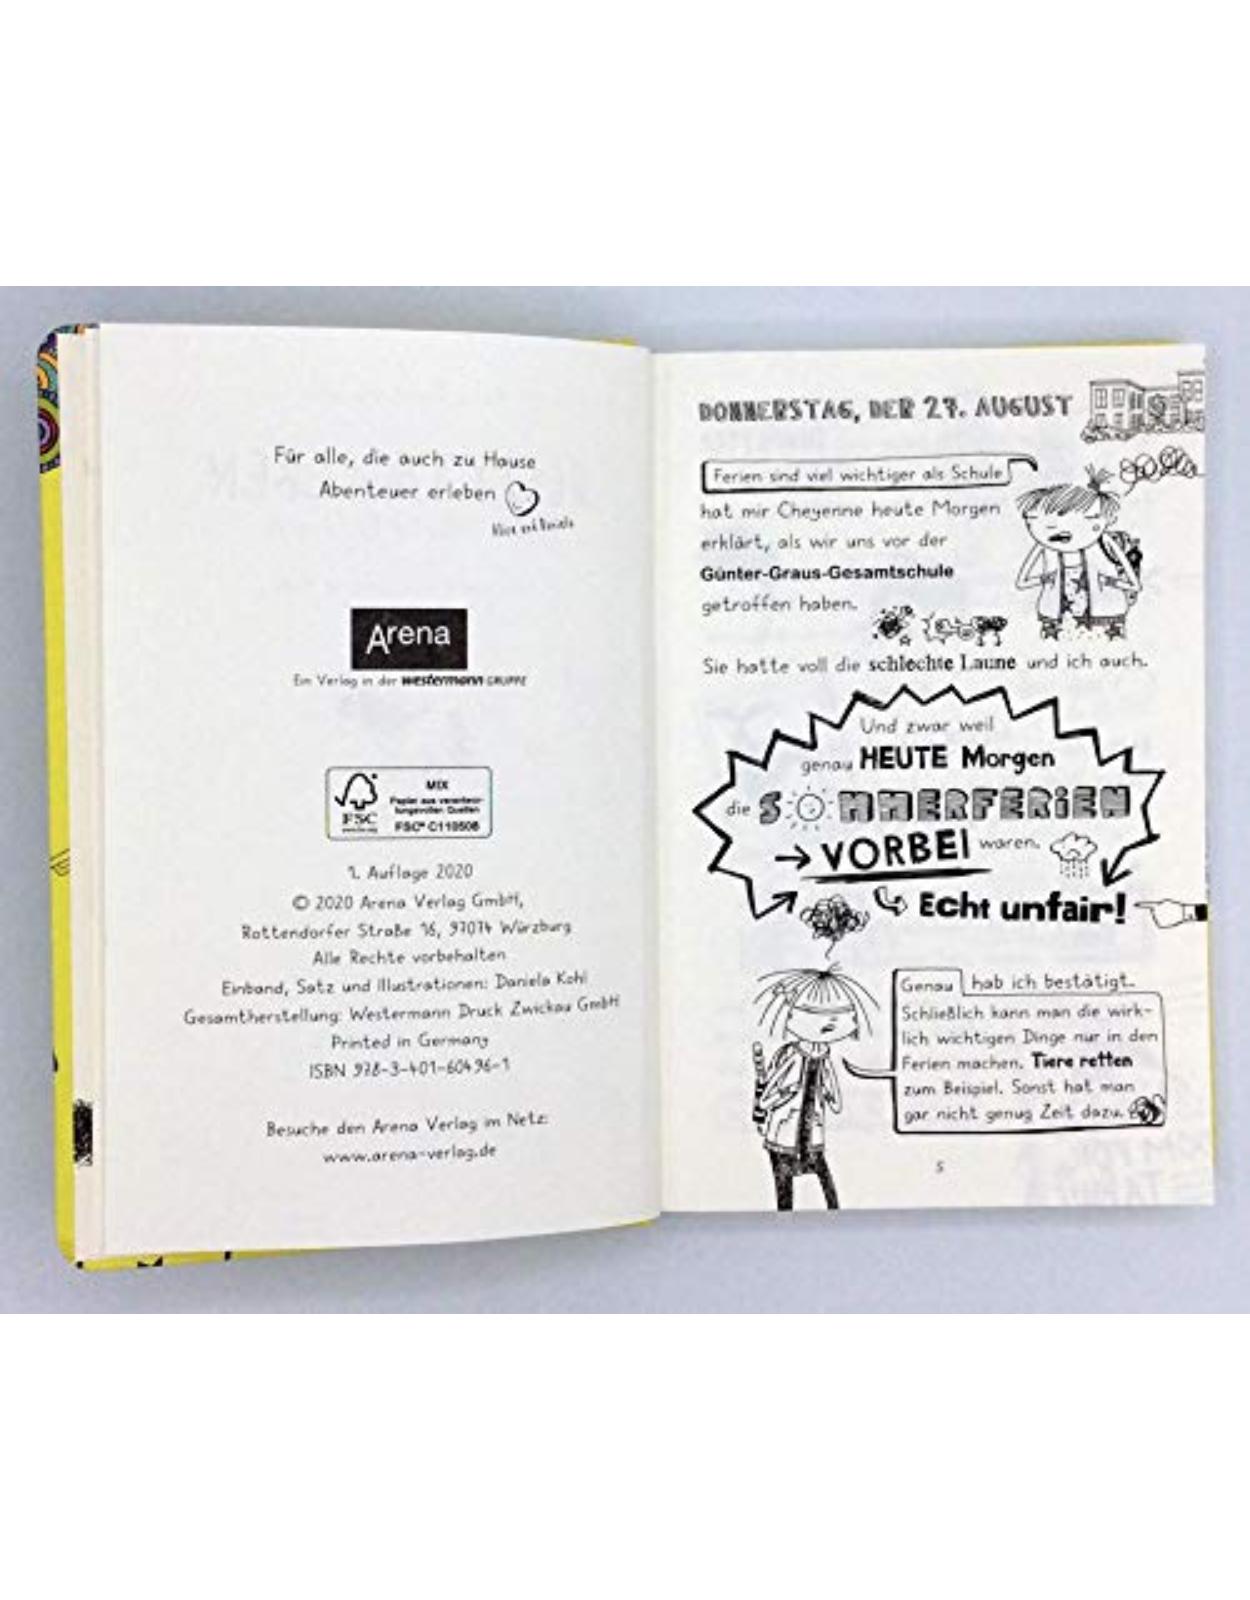 Für alle, die auch zu Hause
Abenteuer erleben
Alice und Daniela
Arena
Ein Verlag in der westermann GRUPPE
MIX
Papier aus verantwor-
tungsvollen Quellen
FSC
www.fsc.org
FSC® C110508
1. Auflage 2020
© 2020 Arena Verlag GmbH,
Rottendorfer Straße 16, 97074 Würzburg
Alle Rechte vorbehalten
Einband, Satz und Illustrationen: Daniela Kohl
Gesamtherstellung: Westermann Druck Zwickau GmbH
Printed in Germany
ISBN 978-3-401-60496-1
Besuche den Arena Verlag im Netz:
www.arena-verlag.de
DONNERSTAG, DER 27. AUGUST
Ferien sind viel wichtiger als Schule
hat mir Cheyenne heute Morgen
erklärt, als wir uns vor der
Günter-Graus-Gesamtschule
getroffen haben.
Sie hatte voll die schlechte Laune und ich auch.
Und zwar weil
genau HEUTE Morgen
die SOMMERFERIEN
VORBEI waren.
Echt unfair!
Genau hab ich bestätigt.
Schließlich kann man die wirk-
lich wichtigen Dinge nur in den
Ferien machen. Tiere retten
zum Beispiel. Sonst hat man
gar nicht genug Zeit dazu.
5